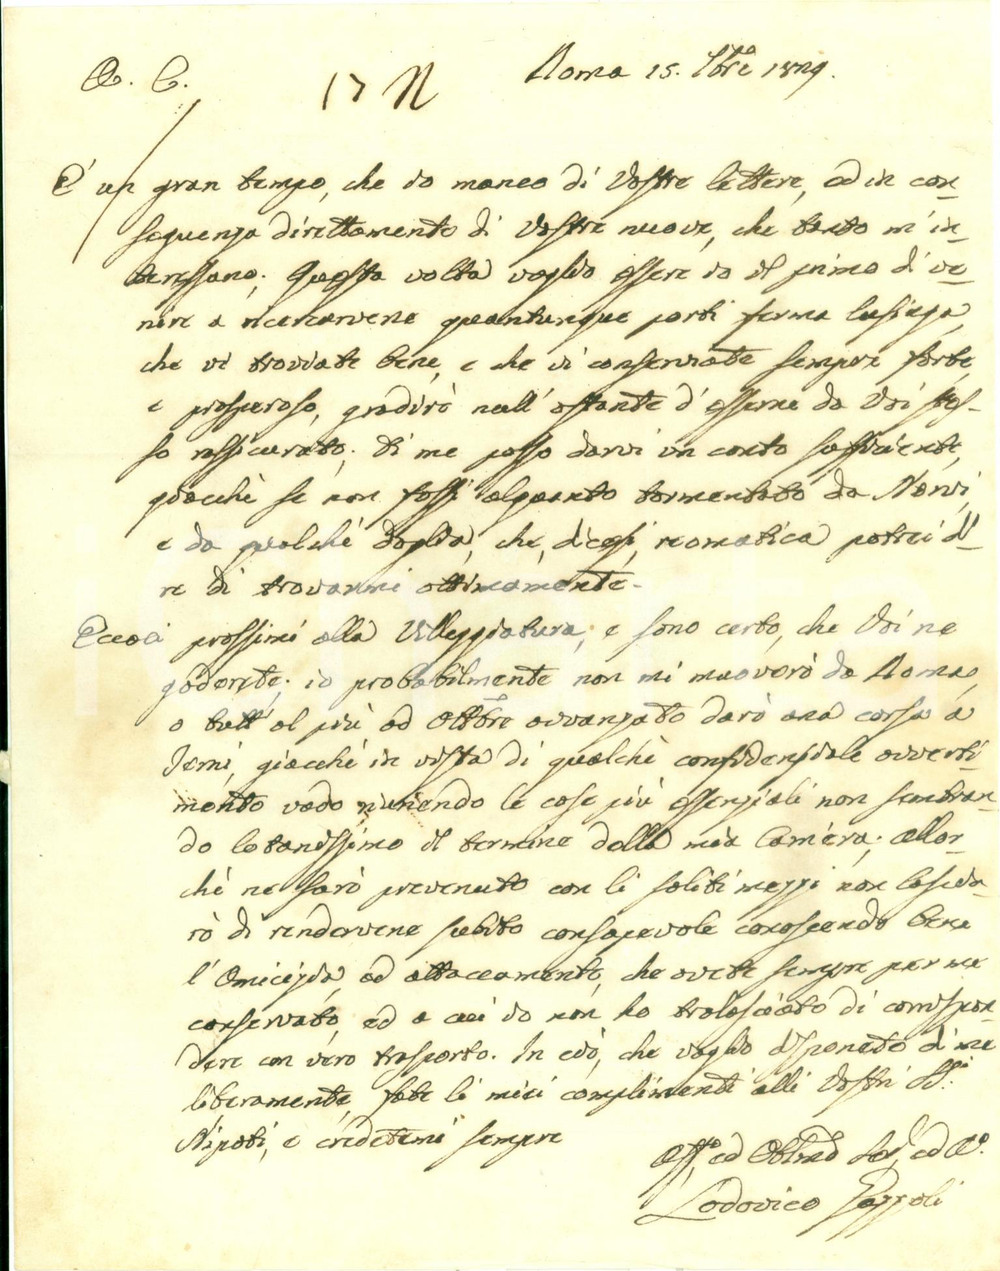 A. C.
17 N
Roma 15. 7bre 1829.
E' un gran tempo, che io manco di Vostre lettere, ed in con-
seguenza direttamente di Vostre nuove, che tanto m'in-
teressano. Questa volta voglio essere io il primo di ve-
nire a ricercarvene quantunque porti ferma lusinga,
che vi troviate bene, e che vi conserviate sempre forte,
e prosperoso, gradirò null'ostante d'esserne da Voi stes-
so rassicurato. Di me posso darvi un conto sufficiente,
giacchè se non fossi alquanto tormentato da Nervi,
e da qualche doglia, che, dicesi, reomatica potrei di-
re di trovarmi ottimamente.
Eccoci prossimi alla Villeggiatura, e sono certo, che Voi ne
goderete; io probabilmente non mi muoverò da Roma,
o tutt'al più ad Ottbre avvanzato darò una corsa a
Terni, giacchè in vista di qualche confidenziale avverti-
mento vado riunendo le cose più essenziali non sembran-
do lotanissimo il termine della mia Carriera; allor-
chè ne sarò prevenuto con li soliti mezzi non lascie-
rò di rendervene subito consapevole conoscendo bene
l'Amicizia, ed attaccamento, che avete sempre per me
conservato, ed a cui io non ho tralasciato di corrispon-
dere con vero trasporto. In ciò, che voglio disponete di me
liberamente, fate li miei complimenti alli Vostri SS.i
Nipoti, e credetemi sempre
Aff. ed Obblmo Ser. ed A.o
Lodovico Pazzoli